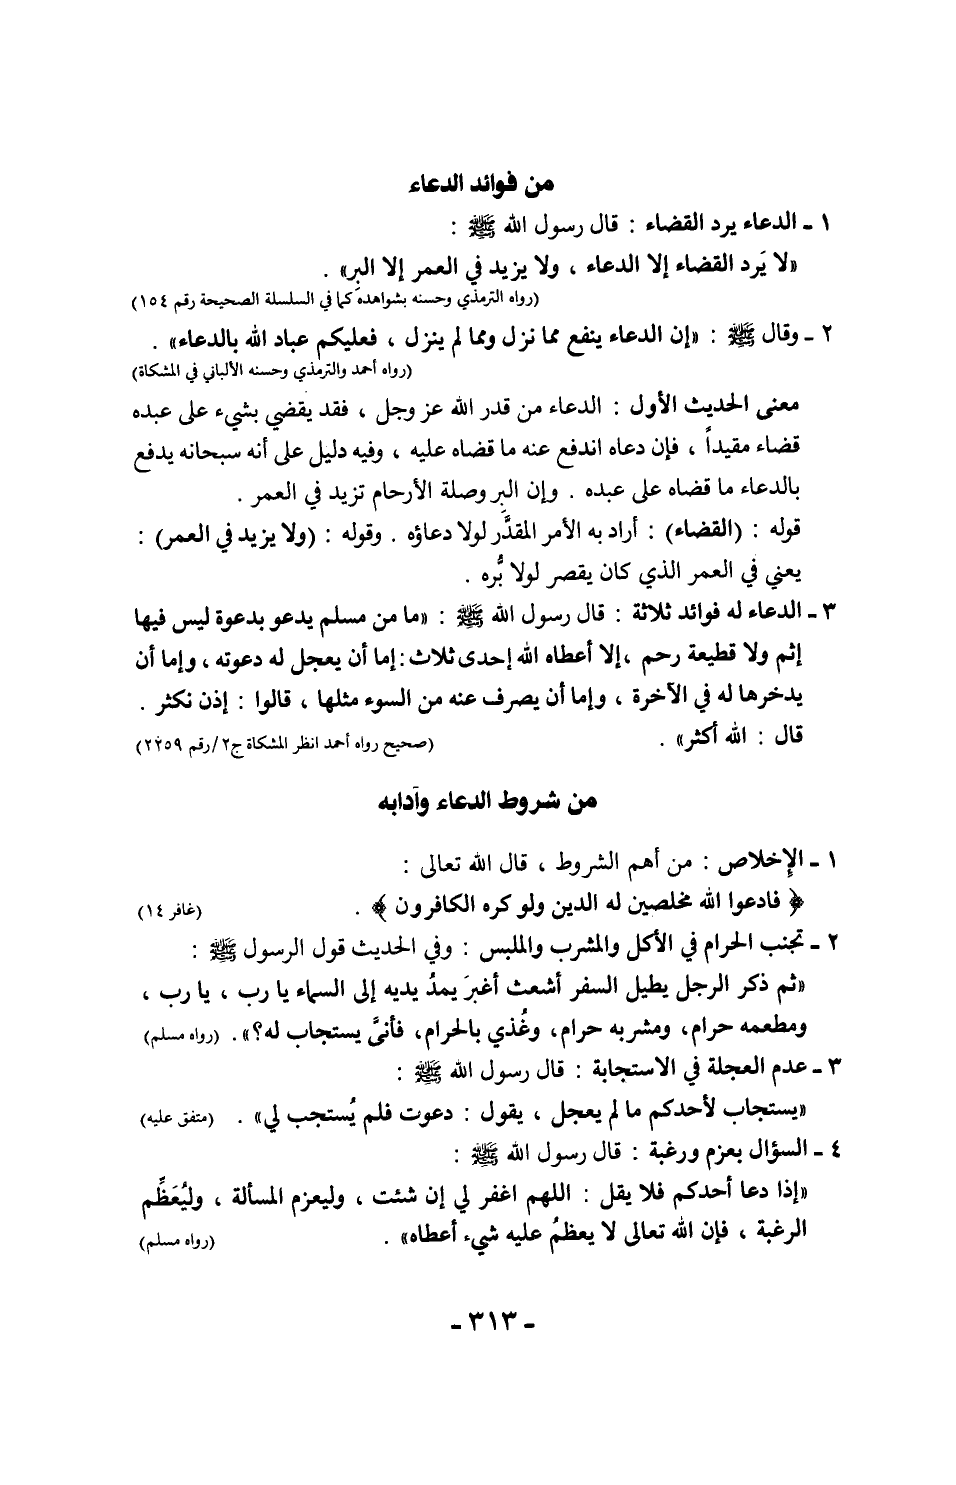 من فوائد الدعاء
١ ـ الدعاء يرد القضاء : قال رسول الله ﷺ :
«لا يَرد القضاء إلا الدعاء ، ولا يزيد في العمر إلا البِر» .
(رواه الترمذي وحسنه بشواهده كما في السلسلة الصحيحة رقم ١٥٤)
٢ ـ وقال ﷺ : «إن الدعاء ينفع مما نزل ومما لم ينزل ، فعليكم عباد الله بالدعاء» .
(رواه أحمد والترمذي وحسنه الألباني في المشكاة)
معنى الحديث الأول : الدعاء من قدر الله عز وجل ، فقد يقضي بشيء على عبده
قضاء مقيداً ، فإن دعاه اندفع عنه ما قضاه عليه ، وفيه دليل على أنه سبحانه يدفع
بالدعاء ما قضاه على عبده . وإن البِر وصلة الأرحام تزيد في العمر .
قوله : (القضاء) : أراد به الأمر المقدَّر لولا دعاؤه . وقوله : (ولا يزيد في العمر) :
يعني في العمر الذي كان يقصر لولا بُّره .
٣ ـ الدعاء له فوائد ثلاثة : قال رسول الله ﷺ : «ما من مسلم يدعو بدعوة ليس فيها
إثم ولا قطيعة رحم ،إلا أعطاه الله إحدى ثلاث : إما أن يعجل له دعوته ، وإما أن
يدخرها له في الآخرة ، وإما أن يصرف عنه من السوء مثلها ، قالوا : إذن نكثر .
قال : الله أكثر» . (صحيح رواه أحمد انظر المشكاة ج٢/رقم ٢٢٥٩)
من شروط الدعاء وآدابه
١ ـ الإخلاص : من أهم الشروط ، قال الله تعالى :
﴿ فادعوا الله مخلصين له الدين ولو كره الكافرون ﴾ . (غافر ١٤)
٢ ـ تجنب الحرام في الأكل والمشرب والملبس : وفي الحديث قول الرسول ﷺ :
«ثم ذكر الرجل يطيل السفر أشعث أغبَر يمدُ يديه إلى السماء يا رب ، يا رب ،
ومطعمه حرام، ومشربه حرام، وغُذي بالحرام، فأنىَّ يستجاب له؟» . (رواه مسلم)
٣ ـ عدم العجلة في الاستجابة : قال رسول الله ﷺ :
«يستجاب لأحدكم ما لم يعجل ، يقول : دعوت فلم يُستجب لي» . (متفق عليه)
٤ ـ السؤال بعزم ورغبة : قال رسول الله ﷺ :
«إذا دعا أحدكم فلا يقل : اللهم اغفر لي إن شئت ، وليعزم المسألة ، وليُعَظِّم
الرغبة ، فإن الله تعالى لا يعظمُ عليه شيء أعطاه» . (رواه مسلم)
ـ ٣١٣ ـ